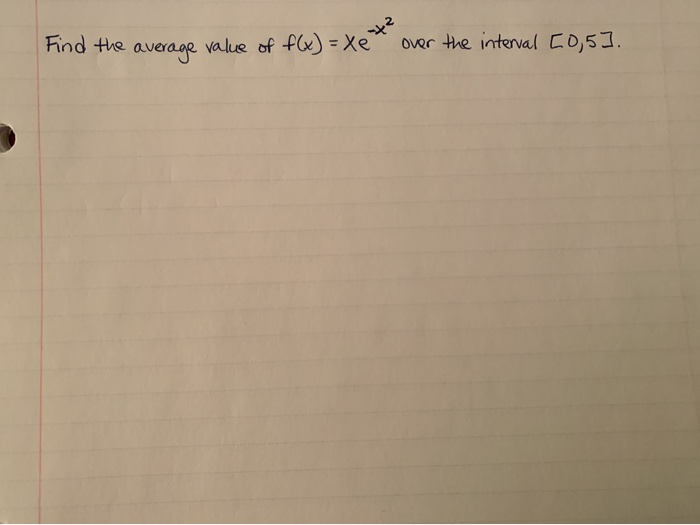 Find the average value of f(x) = xe^{-x^2} over the interval [0,5].